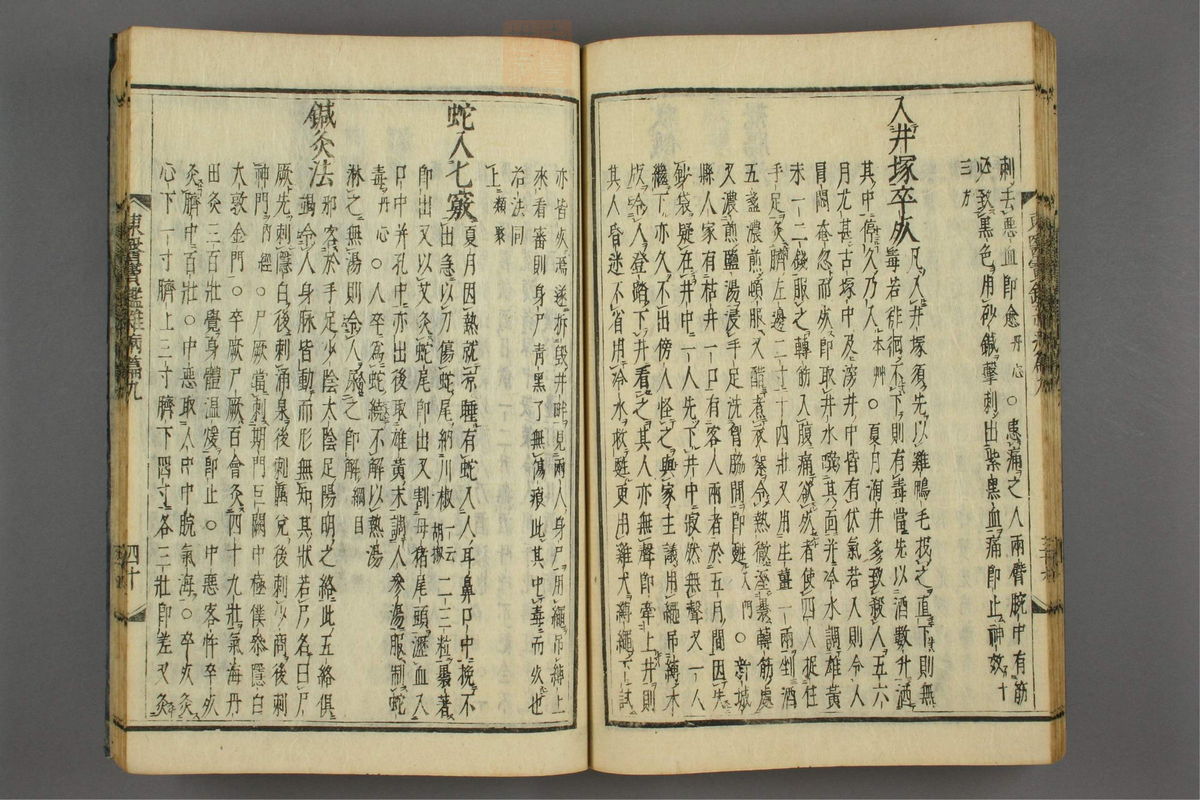 刺去惡血即愈丹心○患痛之人兩臂腕中有筋
必致黑色用砂鍼擊刺出紫黑血痛即止神效十
三方
入井塚卒死凡入井塚須先以雞鴨毛投之直下則無
毒若徘徊不下則有毒當先以酒數升洒
其中停久乃入本艸○夏月淘井多致殺人五六
月尤甚古塚中及深井中皆有伏氣若入則令人
冒悶奄忽而死即取井水噀其面並冷水調雄黃
末一二錢服之轉筋入腹痛欲死者使四人捉住
手足灸臍左邊二寸十四壯又用生薑一兩剉酒
五盞濃煎頓服又醋煮衣絮令熱徹濕裹轉筋處
又濃煎鹽湯浸手足洗胷脇間即甦入門○新城
縣人家有枯井一口有客人兩者於五月間因失
鈔袋疑在井中一人先下井中寂然無聲又一人
繼下亦久不出傍人怪之與家主議用繩吊縛木
板令人登踏下井看之其人亦無聲即牽上井則
其人昏迷不省用冷水救甦更用雞犬縛繩下試
亦皆死焉遂拆毀井畔見兩人身尸用繩吊縛上
來看審則身尸青黑了無傷痕此其中毒而死也
治法同
上類聚
蛇入七竅夏月因熱就凉睡有蛇入人耳鼻口中挽不
出急以刀傷蛇尾納川椒一云胡椒二三粒裹著
即出又以艾灸蛇尾即出又割母猪尾頭瀝血入
口中并孔中亦出後取雄黃末調人參湯服制蛇
毒丹心○人卒爲蛇繞不解以熱湯
淋之無湯則令人尿之即解綱目
鍼灸法邪客於手足少陰太陰足陽明之絡此五絡俱
竭令人身脈皆動而形無知其狀若尸名曰尸
厥先刺隱白後刺涌泉後刺厲兌後刺少商後刺
神門內經○尸厥當刺期門巨闕中極僕參隱白
大敦金門○卒厥尸厥百會灸四十九壯氣海丹
田灸三百壯覺身體溫煖即止○中惡客忤卒死
灸臍中百壯○中惡取人中中脘氣海○卒死灸
心下一寸臍上三寸臍下四寸各三壯即差又灸
東醫寶鑑雜病篇九
四十